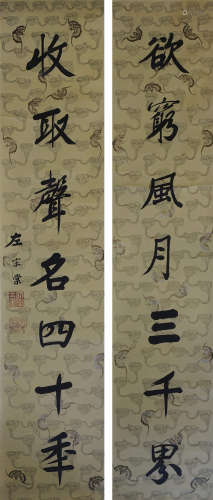 欲窮風月三千界
收取聲名四十年
左宗棠